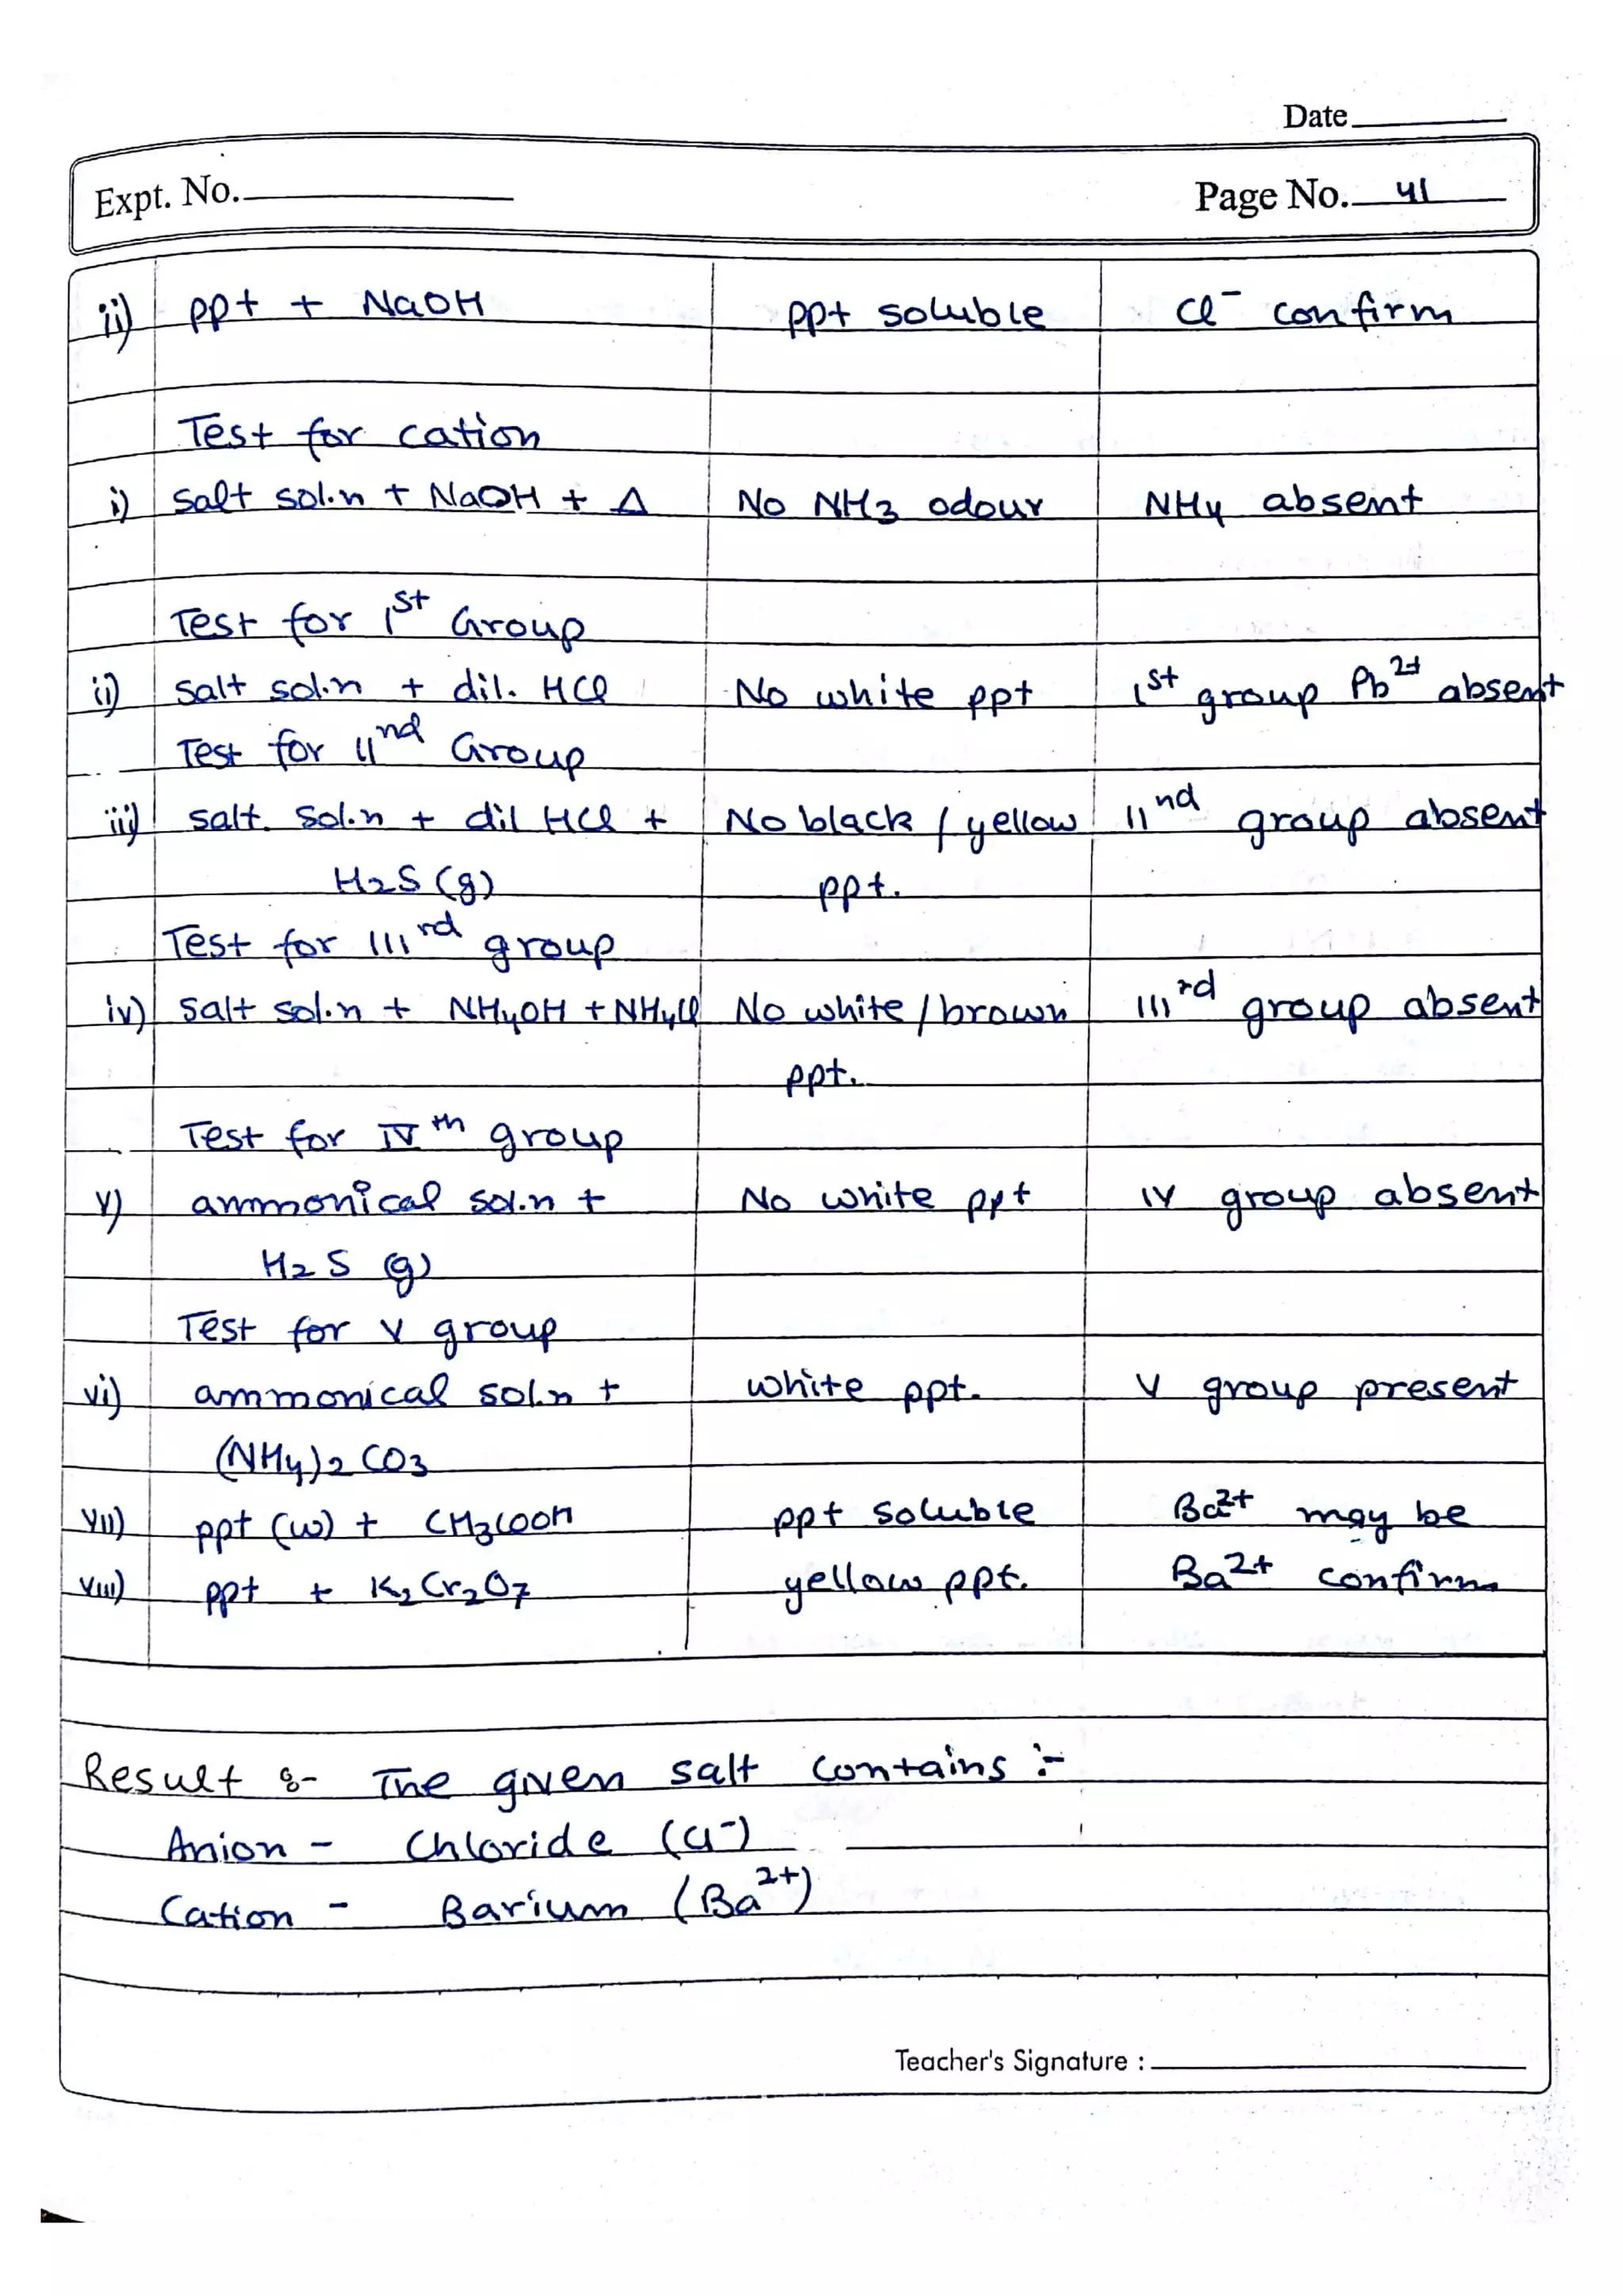 Date
Expt. No. Page No. 41
ii) ppt + NaOH ppt soluble Cl⁻ confirm
Test for cation
i) salt sol.n + NaOH + Δ No NH3 odour NH4 absent
Test for 1st Group
(i) salt sol.n + dil. HCl No white ppt 1st group Pb2+ absent
Test for IInd Group
iii) salt. sol.n + dil HCl + No black / yellow IInd group absent
H2S (g) ppt.
Test for IIIrd group
iv) salt sol.n + NH4OH + NH4Cl No white / brown IIIrd group absent
ppt.
Test for IVth group
v) ammonical sol.n + No white ppt IV group absent
H2S (g)
Test for V group
vi) ammonical sol.n + white ppt. V group present
(NH4)2 CO3
VII) ppt (w) + CH3COOH ppt soluble Ba2+ may be
VIII) ppt + K2Cr2O7 yellow ppt. Ba2+ confirm
Result :- The given salt contains :-
Anion - Chloride (Cl⁻)
Cation - Barium (Ba2+)
Teacher's Signature :